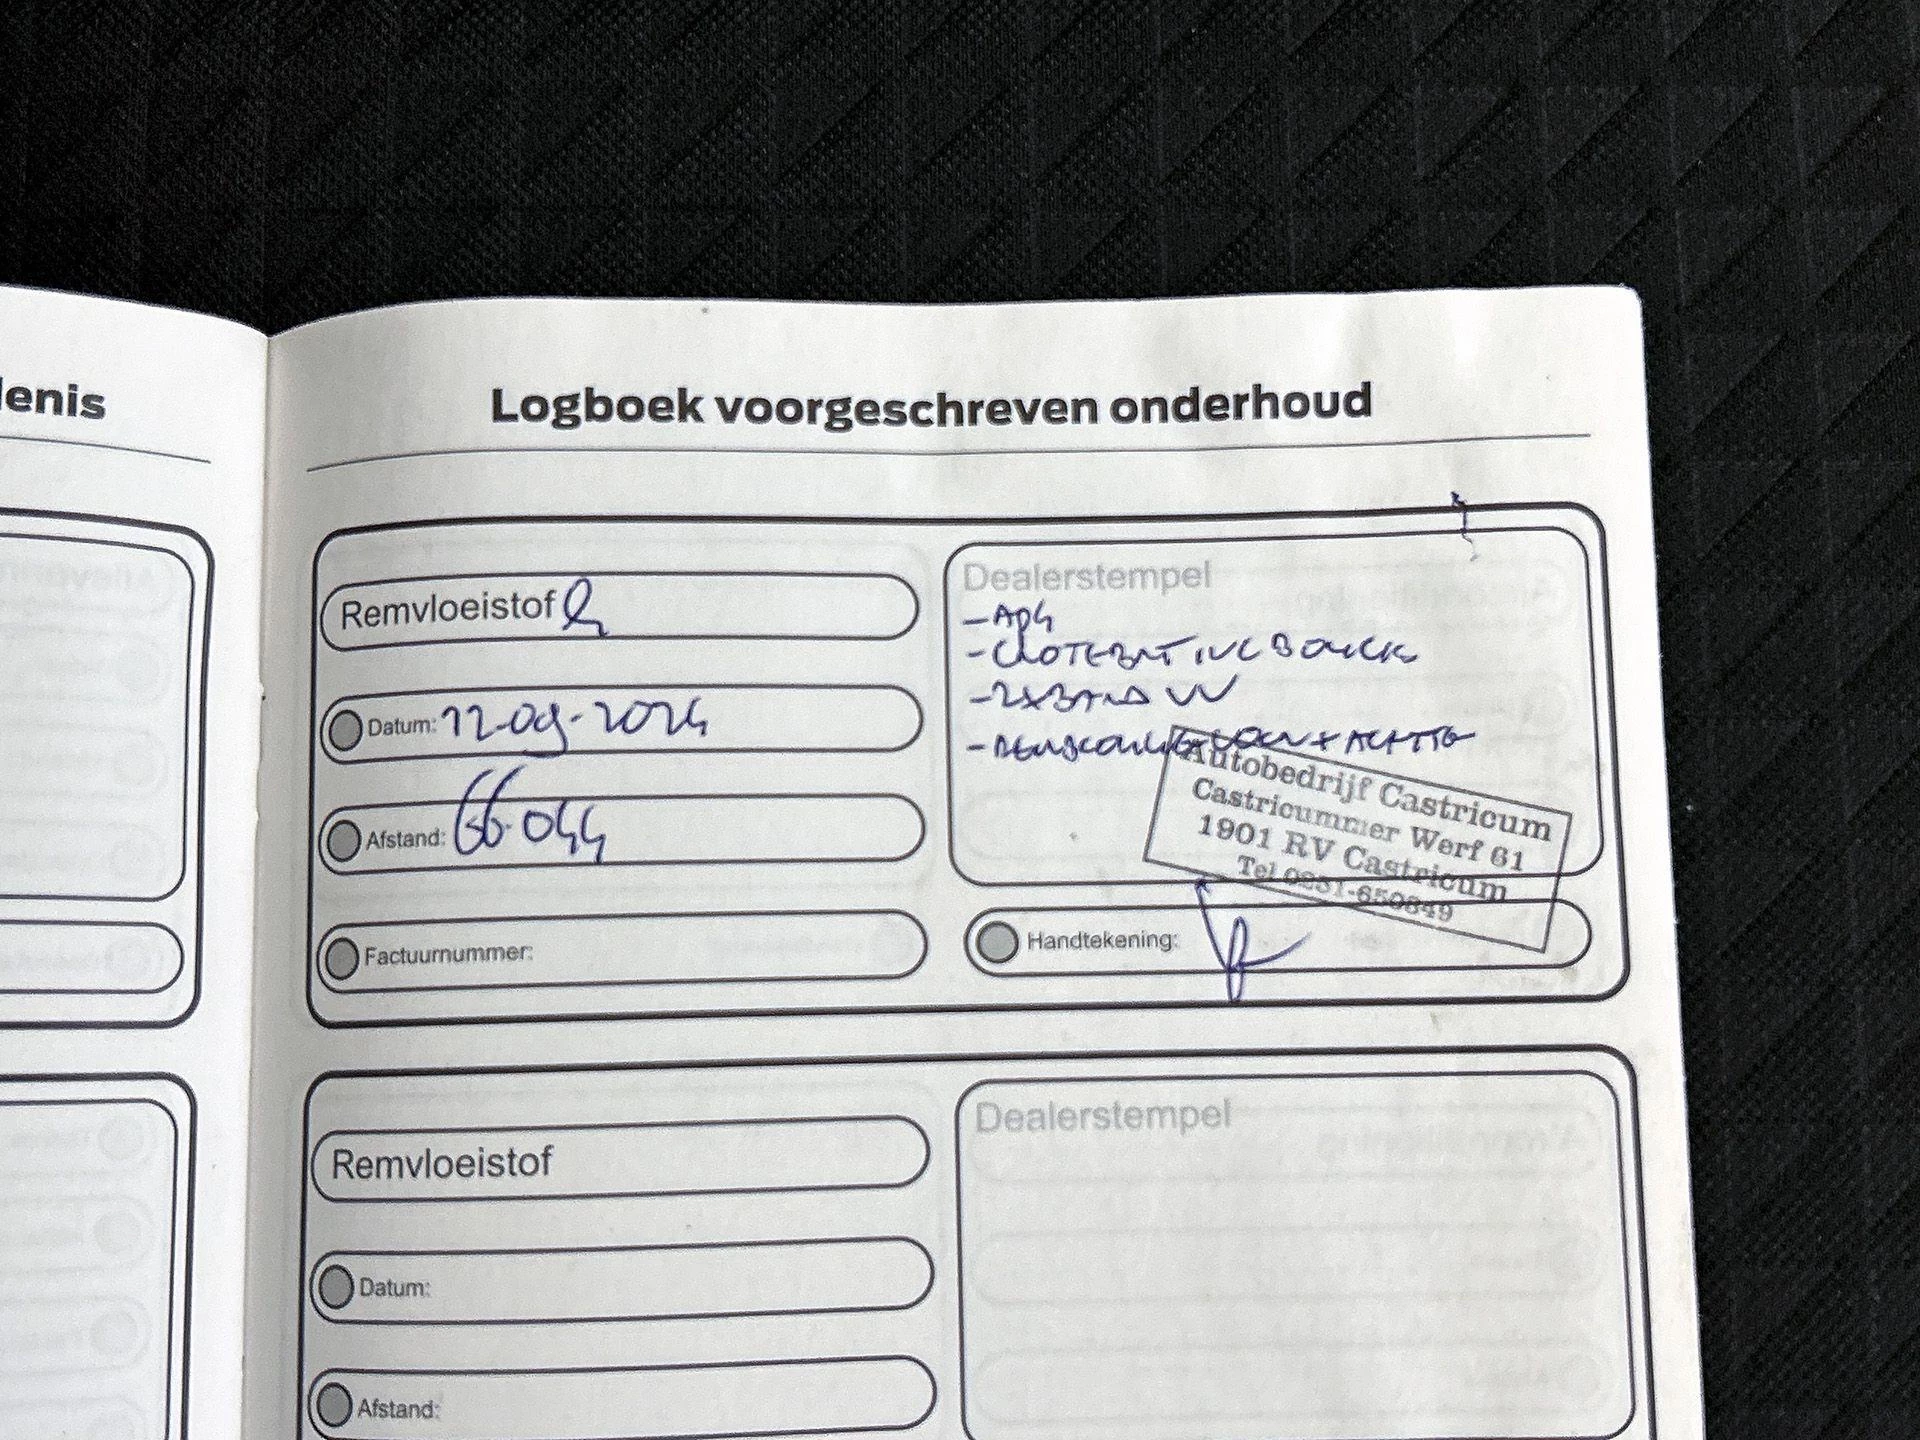 lenis
Logboek voorgeschreven onderhoud
Remvloeistof
Datum: 12-09-2024
Afstand: 66.044
Factuurnummer:
Dealerstempel
- APK
- GROTE BEURT INC BOUGIE
- 2X BAND VV
- REMBLOKKEN VOOR + ACHTER
Autobedrijf Castricum
Castricummer Werf 61
1901 RV Castricum
Tel 0251-650849
Handtekening:
Remvloeistof
Datum:
Afstand:
Dealerstempel